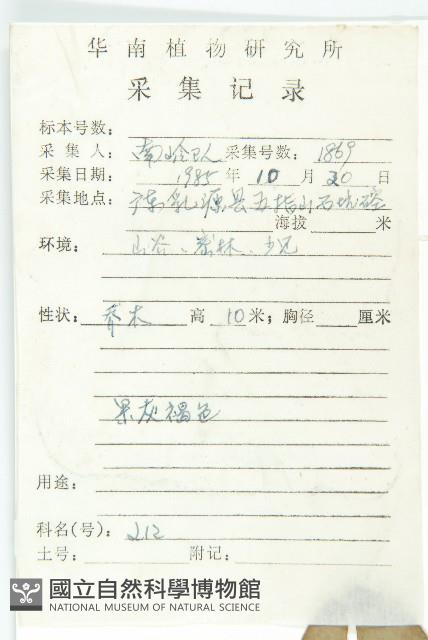 华南植物研究所
采集记录
标本号数:
采集人: 南岭队 采集号数: 1869
采集日期: 1985年10月20日
采集地点: 乳源县五指山石坑
海拔 米
环境: 山谷、密林、少见
性状: 乔木 高10米; 胸径 厘米
果灰褐色
用途:
科名(号): 212
土号: 附记:
國立自然科學博物館
NATIONAL MUSEUM OF NATURAL SCIENCE